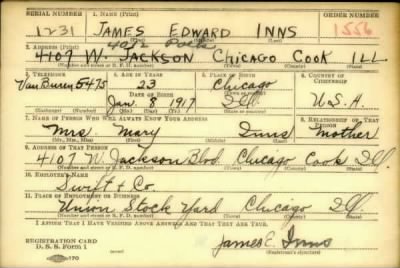 SERIAL NUMBER 1. NAME (Print) ORDER NUMBER
1231 JAMES EDWARD INNS 1556
(First) (Middle) (Last)
2. ADDRESS (Print)
4107 W. JACKSON Chicago Cook ILL
(Number and street or R. F. D. number) (Town) (County) (State)
3. TELEPHONE 4. AGE IN YEARS 5. PLACE OF BIRTH 6. COUNTRY OF CITIZENSHIP
Van Buren 5475 23 Chicago
DATE OF BIRTH
Jan. 8 1917 Ill. U.S.A.
(Exchange) (Number) (Mo.) (Day) (Yr.) (State or county)
7. NAME OF PERSON WHO WILL ALWAYS KNOW YOUR ADDRESS 8. RELATIONSHIP OF THAT PERSON
Mrs. Mary Inns Mother
(Mr., Mrs., Miss) (First) (Middle) (Last)
9. ADDRESS OF THAT PERSON
4107 W. Jackson Blvd. Chicago Cook Ill.
(Number and street or R. F. D. number) (Town) (County) (State)
10. EMPLOYER'S NAME
Swift & Co.
11. PLACE OF EMPLOYMENT OR BUSINESS
Union Stock Yard Chicago Ill.
(Number and street or R. F. D. number) (Town) (County) (State)
I AFFIRM THAT I HAVE VERIFIED ABOVE ANSWERS AND THAT THEY ARE TRUE.
REGISTRATION CARD
D. S. S. Form 1 James E. Inns
(Registrant's signature)